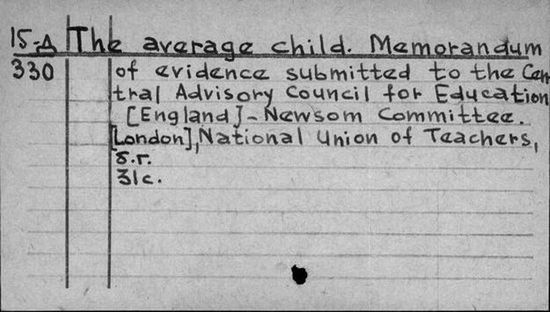 15-A The average child. Memorandum
330 of evidence submitted to the Cen
tral Advisory Council for Education
[England] - Newsom Committee.
[London], National Union of Teachers,
s.r.
31c.